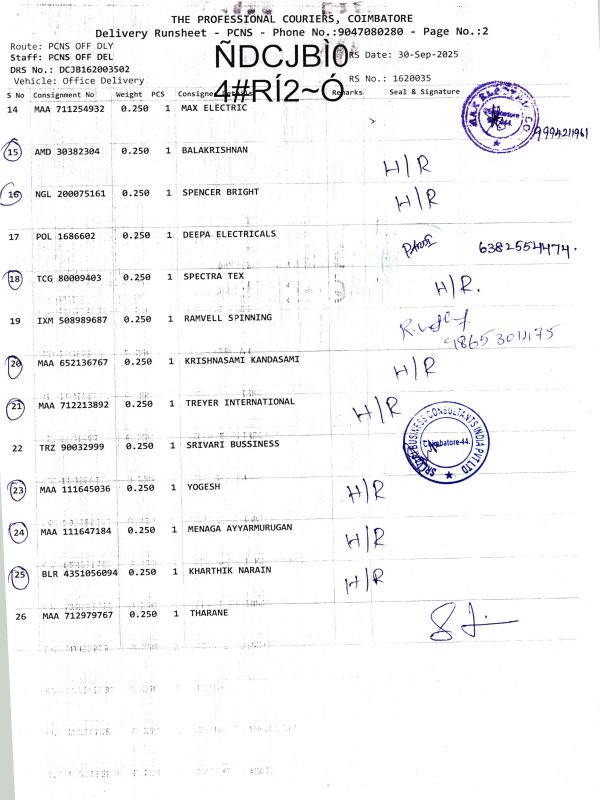 THE PROFESSIONAL COURIERS, COIMBATORE
Delivery Runsheet - PCNS - Phone No.:9047080280 - Page No.:2
Route: PCNS OFF DLY
Staff: PCNS OFF DEL
RS Date: 30-Sep-2025
DRS No.: DCJB162003502
ÑDCJBÌ0
4#RÍ2~Ó
Vehicle: Office Delivery
RS No.: 1620035
S No Consignment No Weight PCS Consignee Details Remarks Seal & Signature
14 MAA 711254932 0.250 1 MAX ELECTRIC
9994211961
15 AMD 30382304 0.250 1 BALAKRISHNAN H/R
16 NGL 200075161 0.250 1 SPENCER BRIGHT H/R
17 POL 1686602 0.250 1 DEEPA ELECTRICALS 6382554474.
18 TCG 80009403 0.250 1 SPECTRA TEX H/R.
19 IXM 508989687 0.250 1 RAMVELL SPINNING
20 MAA 652136767 0.250 1 KRISHNASAMI KANDASAMI H/R
21 MAA 712213892 0.250 1 TREYER INTERNATIONAL H/R
22 TRZ 90032999 0.250 1 SRIVARI BUSSINESS
BUSINESS CONSULTANTS INDIA PVT LTD
Coimbatore-44.
23 MAA 111645036 0.250 1 YOGESH H/R
24 MAA 111647184 0.250 1 MENAGA AYYARMURUGAN H/R
25 BLR 4351056094 0.250 1 KHARTHIK NARAIN H/R
26 MAA 712979767 0.250 1 THARANE